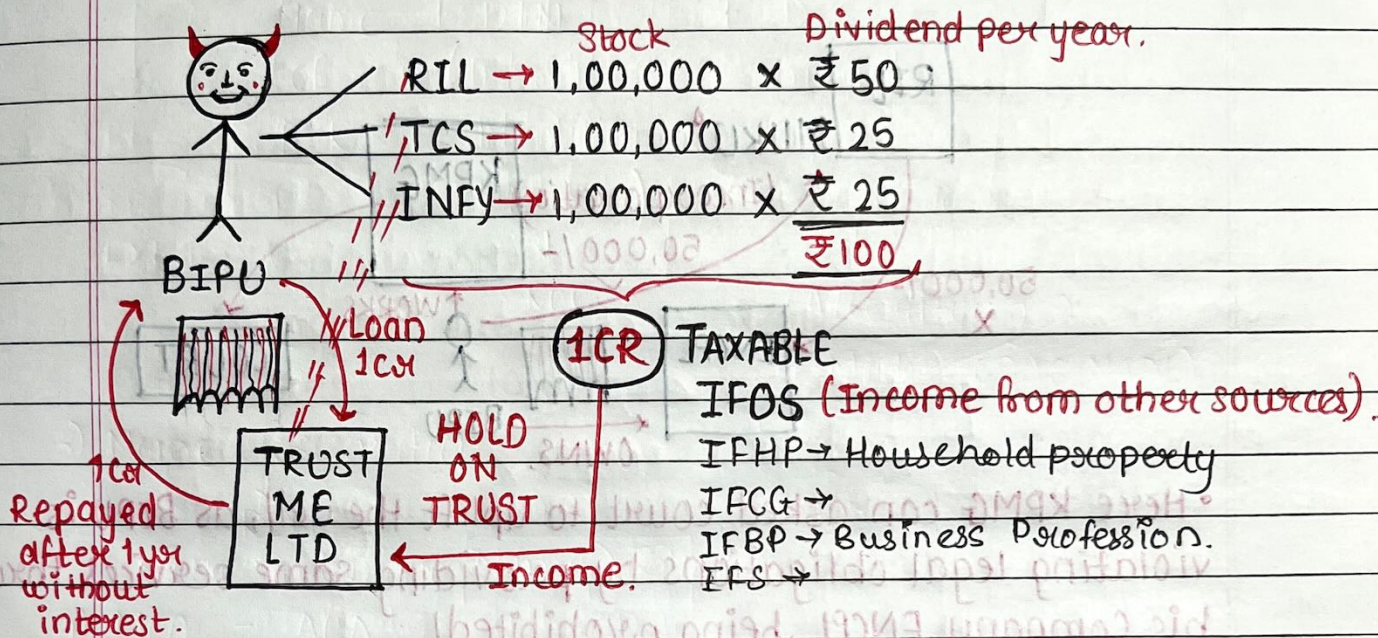 Stock Dividend per year.
RIL → 1,00,000 × ₹50
TCS → 1,00,000 × ₹25
INFY → 1,00,000 × ₹25
₹100
BIPU
Loan
1Cr
1CR TAXABLE
IFOS (Income from other sources).
IFHP → Household property
IFCG →
IFBP → Business Profession.
IFS →
HOLD
ON
TRUST
TRUST
ME
LTD
Income.
1Cr
Repayed
after 1yr
without
interest.